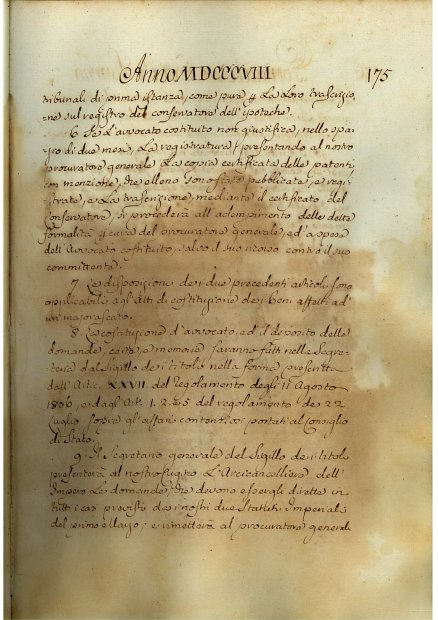 Anno MDCCCVIII 175
tribunali di prima istanza, come pure 4 La Loro trascrizio,
ne sul registro del conservatore dell'ipoteche.
6. Se L'avvocato costituito non giustifica, nello spa,
zio di due mesi, La registratura presentando al nostro
procuratore generale La copia certificata delle patenti
con menzione, che elleno sono state pubblicate, e regi,
strate, e La trascrizione, mediante il certificato del
Conservatore, si procederà all'adempimento delle dette
formalità 4 cura del procuratore generale, ed a spese
dell'Avvocato costituito, salvo il suo ricorso contro il suo
committente.
7. Le disposizioni dei due precedenti articoli sono
applicabili agli Atti di costituzione dei beni affetti ad'
un majorascato.
8. La costituzione d'avvocato, ed il deposito delle
domande, carte, e memorie saranno fatti nella Segre,
teria del Sigillo dei titoli nella forma prescritta
dall'Artic. XXVII. del Regolamento degli 11 Agosto
1806, e dagli Art. 1. 2. e 5. del regolamento de 22
Luglio sopra gli affari contenziosi portati al Consiglio
di Stato.
9. Il Segretario generale del Sigillo dei titoli
presenterà al nostro cugino L'Arcicancelliere dell'
Impero Le domande, che devono essergli dirette in
tutti i casi previsti dai nostri due Statuti Imperiali
del primo Marzo; e rimetterà al procuratore generale